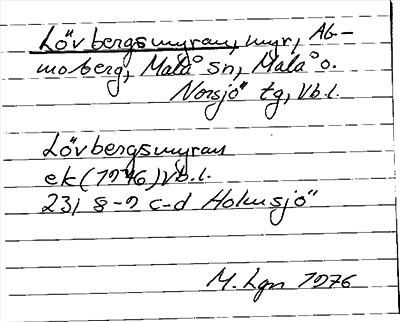 Lövbergsmyran, myr, Ab-
moberg, Malå sn, Malå o.
Norsjö tg, Vb.l.
Lövbergsmyran
ek (1946) Vb.l.
23 I 8-9 c-d Holmsjö
M. Lgn 1976